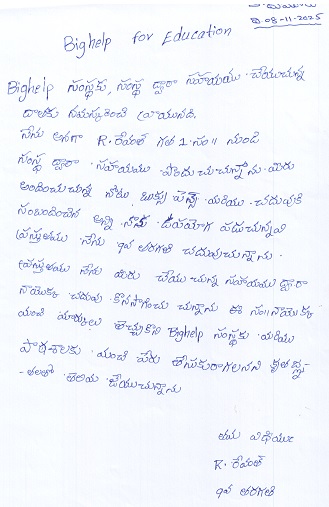 ది 08-11-2025
Bighelp for Education
Bighelp సంస్థకు, సంస్థ ద్వారా సహాయము చేయుచున్న
దాతకు నమస్కరించి వ్రాయునది.
నేను అనగా R. రేవతి గత 1 సం॥ నుండి
సంస్థ ద్వారా సహాయము పొందుచున్నాను మీరు
అందించుచున్న నోటు బుక్స్ పెన్స్ మరియు చదువుకి
సంబంధించిన అన్ని నాకు ఉపయోగ పడుచున్నవి
ప్రస్తుతము నేను 9వ తరగతి చదువుచున్నాను.
ప్రస్తుతము నేను మీరు చేయుచున్న సహాయము ద్వారా
నాయొక్క చదువు కొనసాగించు చున్నాను ఈ సం॥ నాయొక్క
మంచి మార్కులు తెచ్చుకొని Bighelp సంస్థకు మరియు
పాఠశాలకు మంచి పేరు తీసుకురాగలనని కృతజ్ఞ-
-తలతో తెలియ చేయుచున్నాను
తమ విధేయు
R. రేవతి
9వ తరగతి